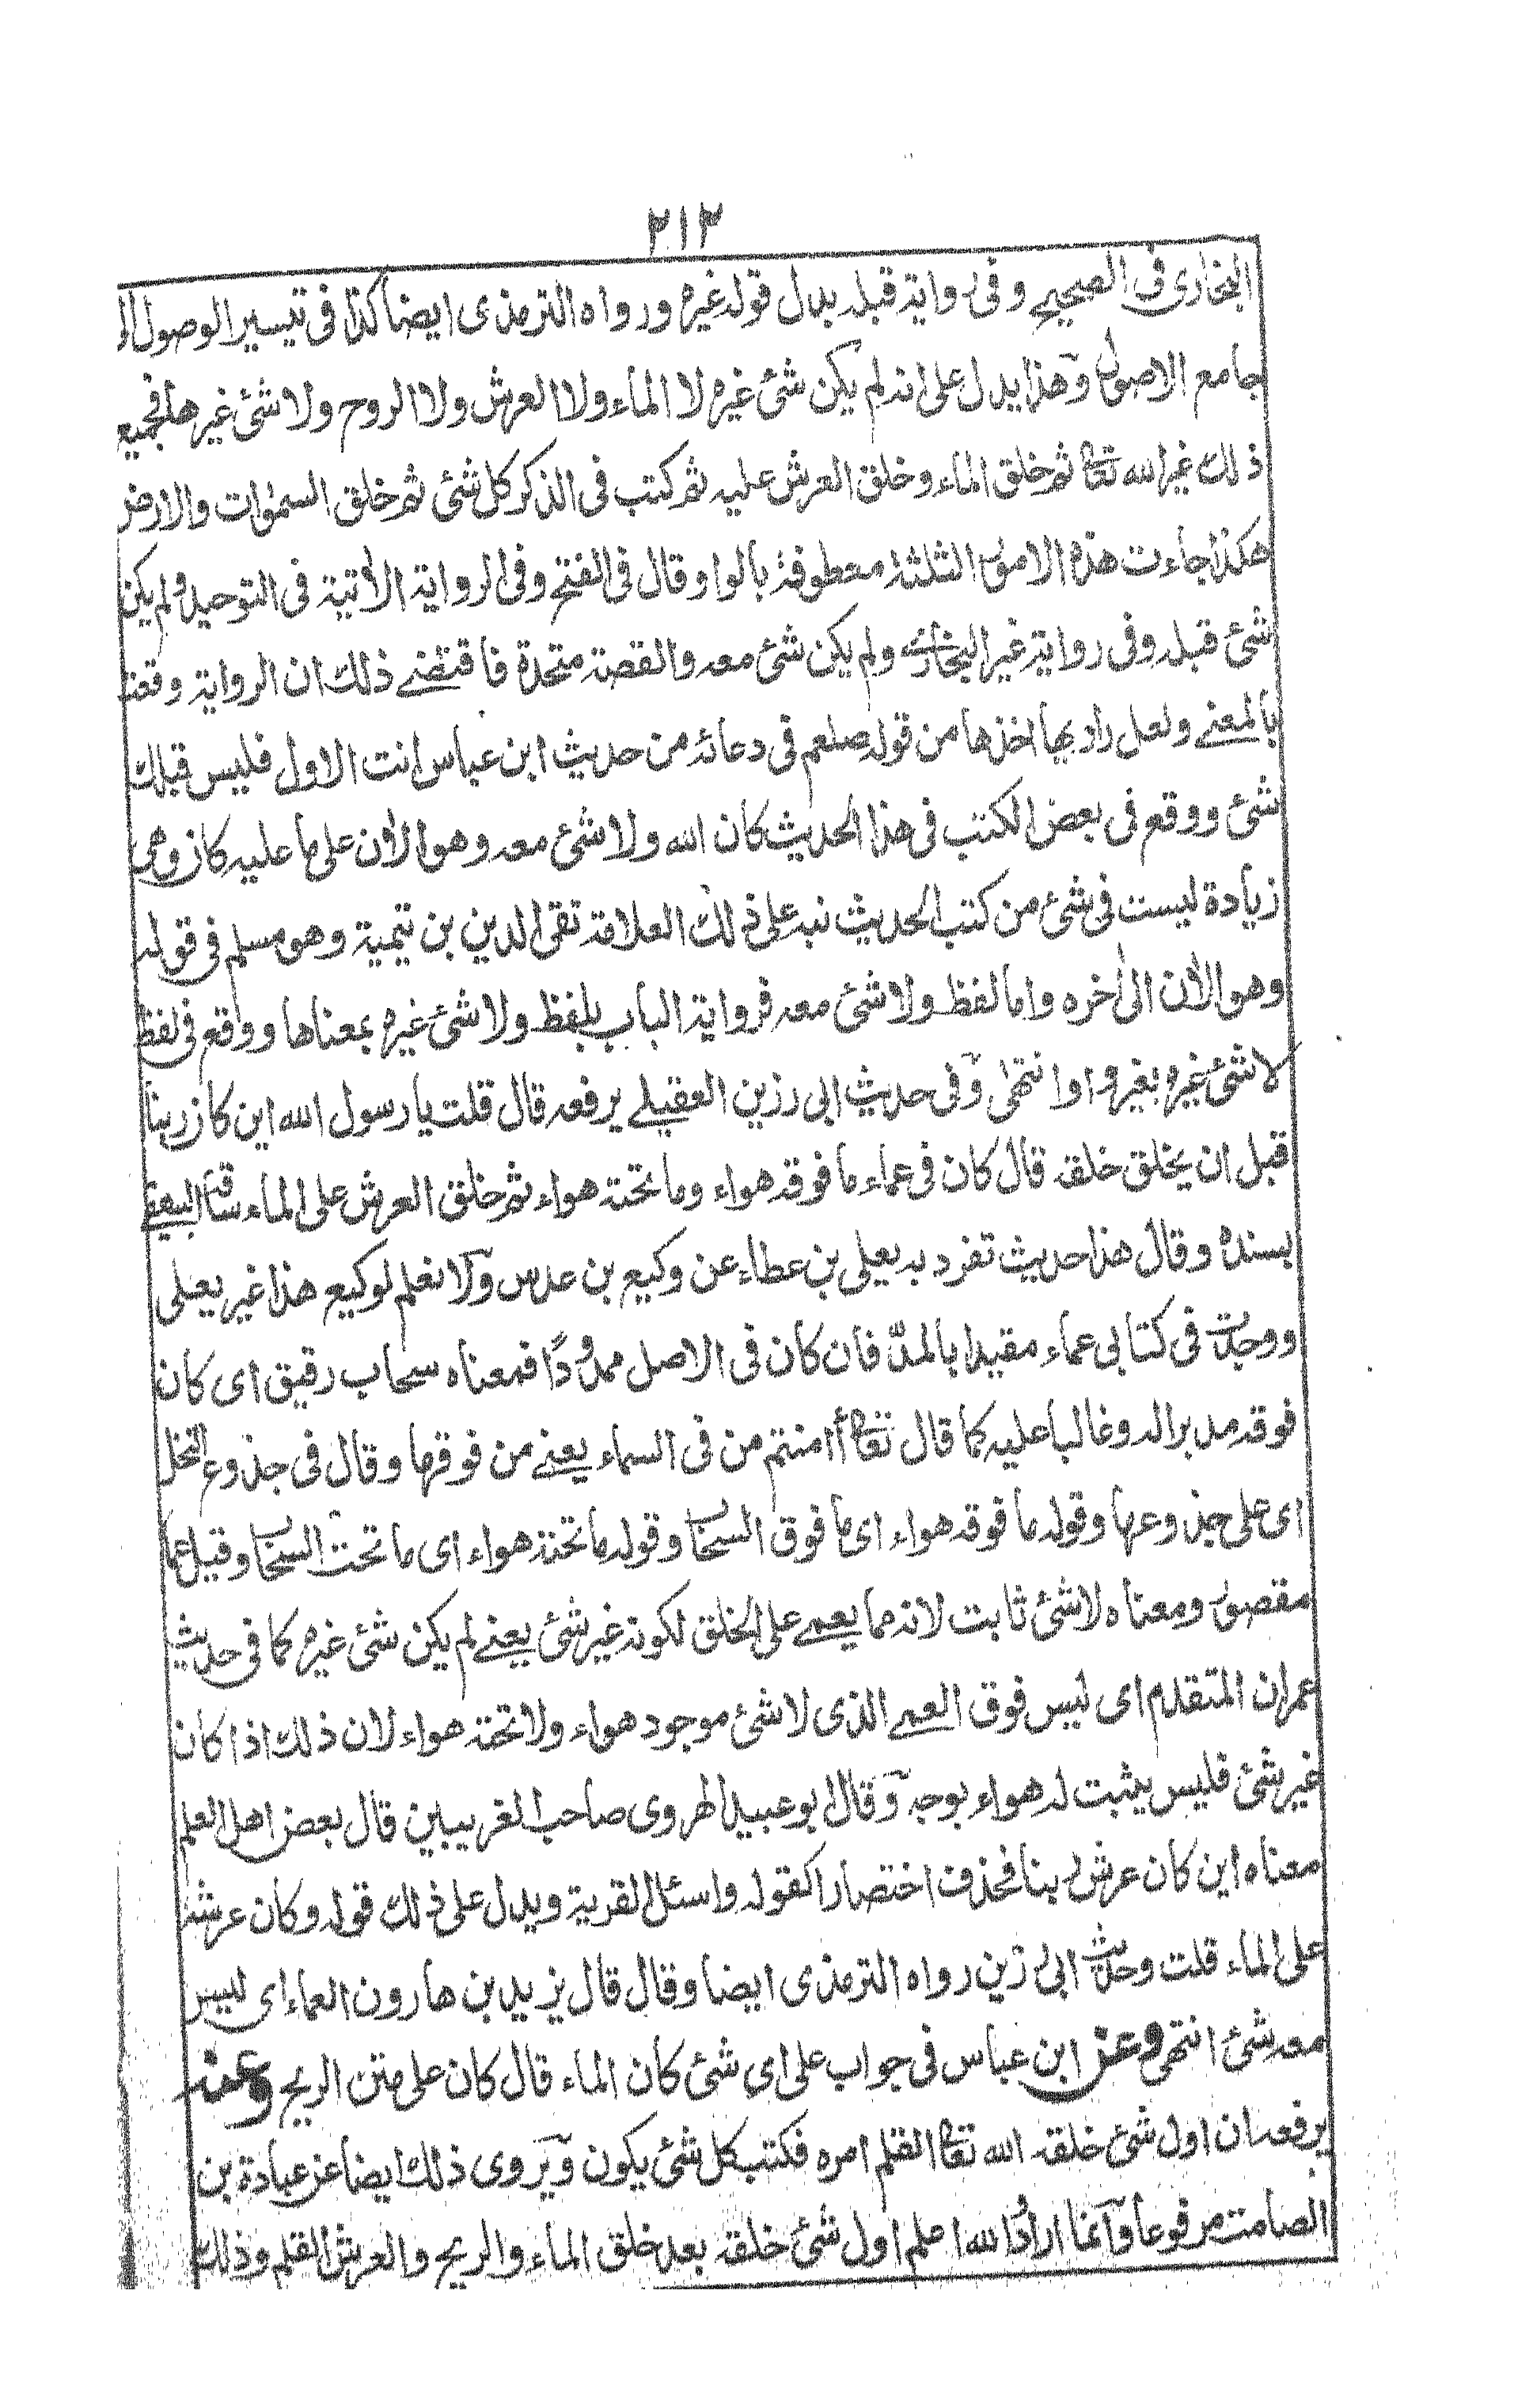 ٢١٣
البخارى فى الصحيح وفى رواية قبله بدل قوله غيره ورواه الترمذى ايضا كذا فى تيسير الوصول الى
جامع الاصول وهذا يدل على انه لم يكن شئ غيره لا الماء ولا العرش ولا الروح ولا شئ غيرها فجميع
ذلك غير الله تعا ثم خلق الماء وخلق العرش عليه ثم كتب فى الذكر كل شئ ثم خلق السموات والارض
هكذا جاءت هذه الامور الثلثة معطوفة بالواو وقال فى الفتح وفى الرواية الأتية فى التوحيد ولم يكن
شئ قبله وفى رواية غير البخارى ولم يكن شئ معه والقصة متحدة فاقتضے ذلك ان الرواية وقعت
بالمعنے ولعل راويها اخذها من قوله صلعم فى دعائه من حديث ابن عباس انت الاول فليس قبلك
شئ ووقع فى بعض الكتب فى هذا الحديث كان الله ولا شئ معه وهو الأن على ما عليه كان وهى
زيادة ليست فى شئ من كتب الحديث نبه على ذلك العلامة تقى الدين بن تيمية وهو مسلم فى قوله
وهو الأن الى أخره واما لفظ ولا شئ معه فرواية الباب بلفظ ولا شئ غيره بمعناها ووقع فى لفظ
لا شئ غيره بغير واو انتهى وفى حديث ابى رزين العقيلے يرفعه قال قلت يا رسول الله اين كان ربنا
قبل ان يخلق خلقه قال كان فى عماء ما فوقه هواء وما تحته هواء ثم خلق العرش على الماء ساقه البيهقے
بسنده وقال هذا حديث تفرد به يعلى بن عطاء عن وكيع بن عدس ولا نعلم لوكيع هذا غير يعلى
ووجدت فى كتابى عماء مقيدا بالمدّ فان كان فى الاصل ممدودًا فمعناه سحاب رقيق اى كان
فوقه مدبرا له وغالبا عليه كما قال تعا أامنتم من فى السماء يعنے من فوقها وقال فى جذوع النخل
اى على جذوعها وقوله ما فوقه هواء اى ما فوق السحاب وقوله ما تحته هواء اى ما تحت السحاب وقيل عما
مقصور ومعناه لا شئ ثابت لانه مما يعمے على الخلق لكونه غير شئ يعنے لم يكن شئ غيره كما فى حديث
عمران المتقدم اى ليس فوق العمے الذى لا شئ موجود هواء ولا تحته هواء لان ذلك اذا كان
غير شئ فليس يثبت له هواء بوجه وقال ابو عبيد الهروى صاحب الغريبين قال بعض اهل العلم
معناه اين كان عرش ربنا فحذف اختصارا كقوله واسئل القرية ويدل على ذلك قوله وكان عرشه
على الماء قلت وحديث ابى رزين رواه الترمذى ايضا وقال قال يزيد بن هارون العماء اى ليس
معه شئ انتهى وعن ابن عباس فى جواب على اى شئ كان الماء قال كان على متن الريح وعنه
يرفعه ان اول شئ خلقه الله تعا القلم امره فكتب كل شئ يكون ويروى ذلك ايضا عن عبادة بن
الصامت مرفوعا وانما اراد الله اعلم اول شئ خلقه بعد خلق الماء والريح والعرش القلم وذلك